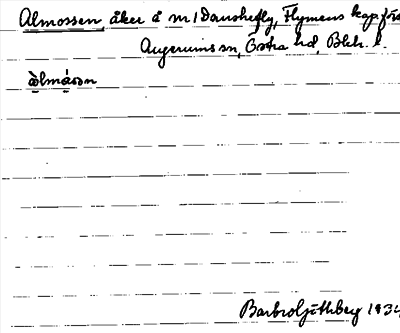 Almossen, åker å m/ Danskefly, Flymens kap.förs
Augerums sn, Östra hd, Blek. l.
àlmǻsən
Barbro Ljüthberg 193